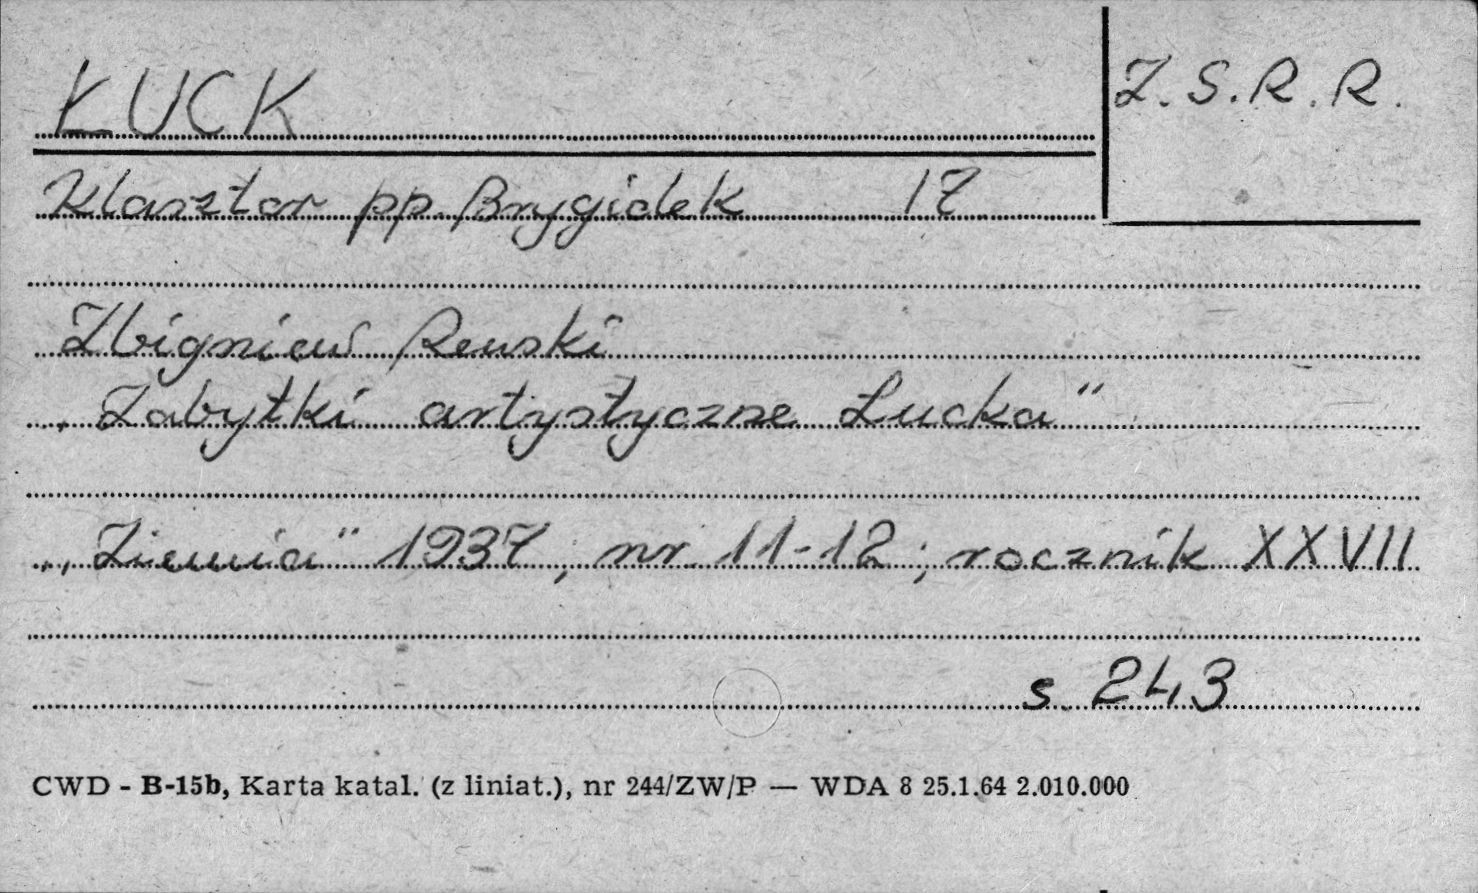 ŁUCK
Z.S.R.R.
Klasztor pp. Brygidek 17
Zbigniew Rewski
„Zabytki artystyczne Łucka"
„Ziemia" 1937; nr. 11-12; rocznik XXVII
s. 243
CWD - B-15b, Karta katal. (z liniat.), nr 244/ZW/P — WDA 8 25.1.64 2.010.000